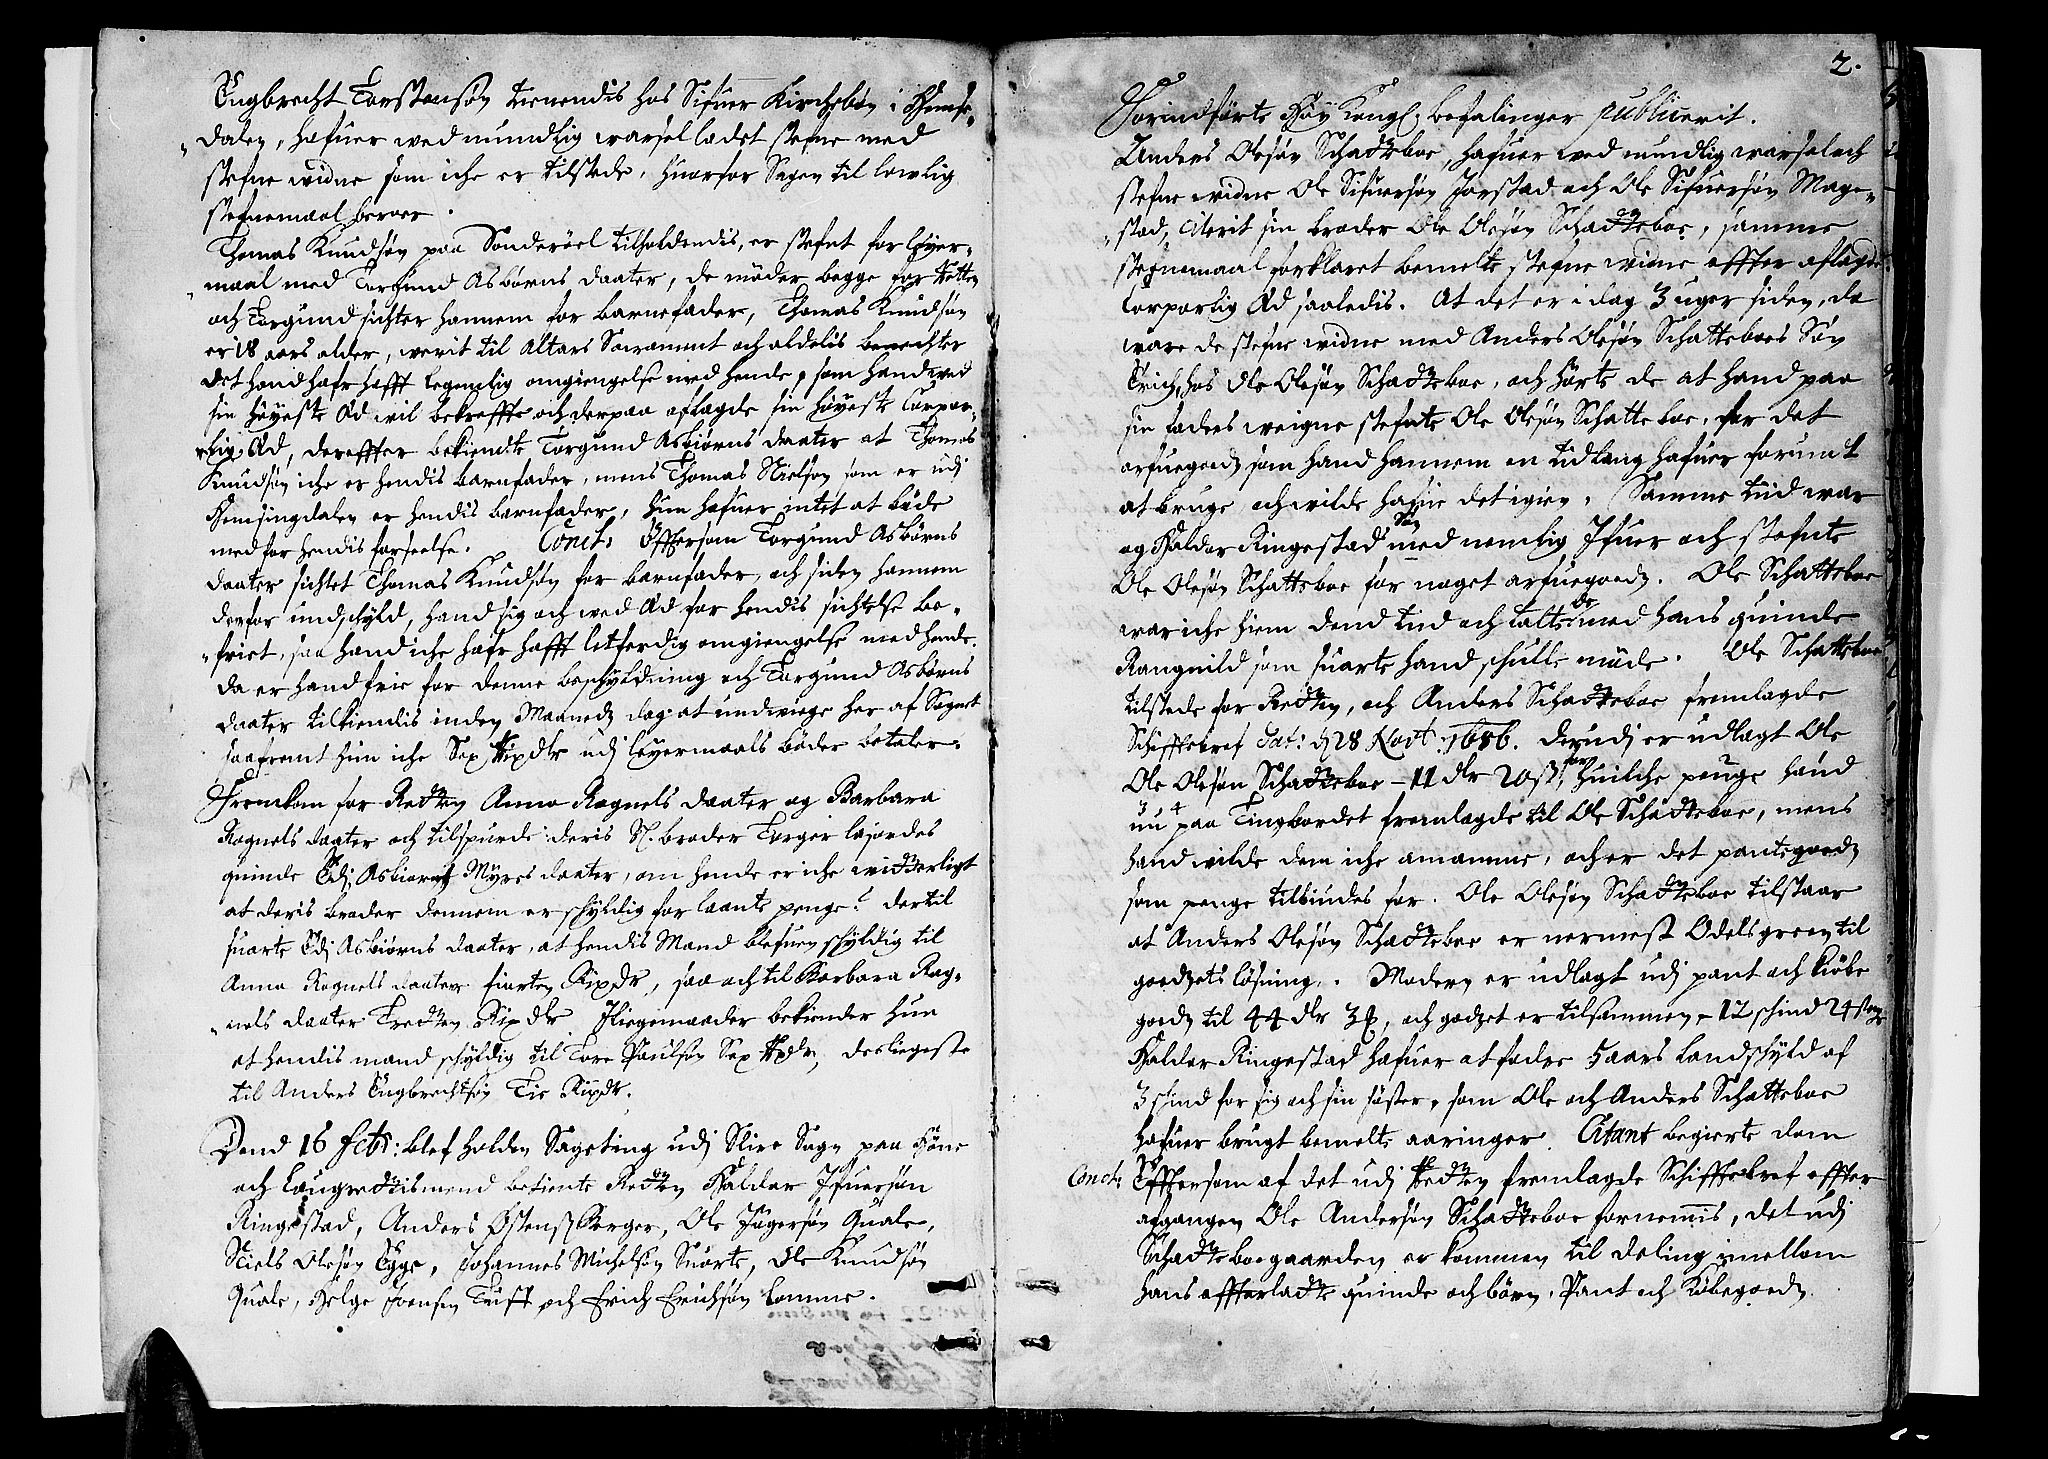 Engbrecht Torstensøn tienendis hos Sifuer Kirchebøn i Hemse,,
,,dalen, hafuer ved mundlig warsel ladet stefne med
stefne widne som iche er tilstede, huorfor Sagen til lowlig
stefnemaal beroer.
Thomas Knudsøn paa Sonderøel tilholdendis, er stefnt for leyer,,
,,maal med Torgund Asbørns daater, de møder begge for Retten
och Torgund sichter hannem for barnefader, Thomas Knudsøn
er 18 aars alder, werit til Altars Sacrament och aldelis benechter
det hand hafr hafft legemlig omgiengelse med hende, som hand wed
sin høyeste Æd wil bekreffte och derpaa aflagde sin høyeste Corpor,,
,,lig Æd, dereffter bekiendte Torgund Asbiørns daater at Thomas
Knudsøn iche er hendis barnfader, mens Thomas Nielsøn som er udj
Hemsingdalen er hendis barnfader, hun hafuer intet at bøde
med for hendis forseelse. Conct: Effftersom Torgund Asbørns
daater sichtet Thomas Knudsøn for barnfader, och siden hannem
derfor undschyld, hand sig och wed Æd for hendis sichtelse be,,
,,friet, saa hand iche hafr hafft letferdig omgiengelse med hende.
Da er hand frie for denne beschyldning och Torgund Asbørns
daater tilkiendis inden Maanedz dag at undwiege her af Sognet
saafremt hun iche Sex Rixdlr udj leyermaals bøder betaler.
Fremkom for Retten Anna Ragnels daater og Barbara
Ragnels daater och tilspurde deris Sl. broder Torger lajordes
quinde Edj Asbiørns Myres daater, om hende er iche widterligt
at deris broder dennem er schyldig for laante penge? dertil
suarte Edj Asbiørns daater, at hendis Mand blefuen schyldig til
Anna Ragnels daater fiorten Rixdr, saa och til Barbara Rag,,
,,nels daater Tretten Rixdlr. Jliegemaader bekiender hun
at hendis mand schyldig til Tore Paulsøn Sex Rxdlr, desliegeste
til Anders Engbrechtsøn Tie Rixdr.
Dend 16 Febr: blef holden Sageting udj Slire Sogn paa Høne
och laugrettismend betiente Retten Haldor Jfuersøn
Ringestad, Anders Østensøn Berger, Ole Jøgersøn Quale,
Niels Olesøn Egge, Johannes Michelsøn Suorte, Ole Knudsøn
Quale, Helge Joensen Tuft och Erich Erichsøn lomme.
2.
Forindførte Høy Kongl. befalinger publicerit.
Anders Olesøn Schatteboe, hafuer wed mundlig warsel och
stefne widne Ole Sifuersøn Jorstad och Ole Sifuersøn Mage,,
,,stad, Citerit sin broder Ole Olesøn Schatteboe, samme
stefnemaal forklaret bemelte stefne widne effter aflagde
Corporlig Æd saaledis. At det er i dag 3 uger siden, da
ware de stefne widne med Anders Olesøn Schatteboes Søn
Erich, hos Ole Olesøn Schatteboe, och hørte de at hand paa
sin faders weigne stefnte Ole Olesøn Schatteboe, for det
arfuegodz som hand hannem en tidlang hafuer forunt
at bruge, och wilde hafue det igien. Samme tiid war
og Haldor Ringestad Søn med nemlig Jfuer och stefnte
Ole Olesøn Schatteboe for noget arfuegodz. Ole Schatteboe
war iche hiem dend tiid och talte de med hans quinde
Rangnild som suarte hand schulle møde. Ole Schatteboe
tilstede for Retten, och Anders Schatteboe fremlagde
Schifftebref Dat: d 28 Novt 1686. derudj er udlagt Ole
Ole Olesøn Schatteboe - 11 dlr 20 ß, for huilche penge hand
nu paa Tingbordet fremlagde til Ole Schatteboe, mens
hand wilde dem iche anamme, och er det pantegodz
som penge tilbindes for. Ole Olesøn Schatteboe tilstaar
at Anders Olesøn Schatteboe er nermest Odelsgreen til
godzets løsning. Moderen er udlagt udj pant och kiøbe
godz til 44 dlr 3 ß, och godzet er tilsammen - 12 schind 24
Haldor Ringestad hafuer at fodre 5 aars landschyld af
3 schind for sig och sin søster, som Ole och Anders Schatteboe
hafuer brugt bemelte aaringer. Citant begierte dom
Conct: Efftersom af det udj Retten fremlagde Schifftebref effter
afgangen Ole Andersøn Schatteboe fornemmis, det udj
Schatteboegaarden er kommen til deling imellom
hans effterladte quinde och børn, Pant och Kiøbegodz